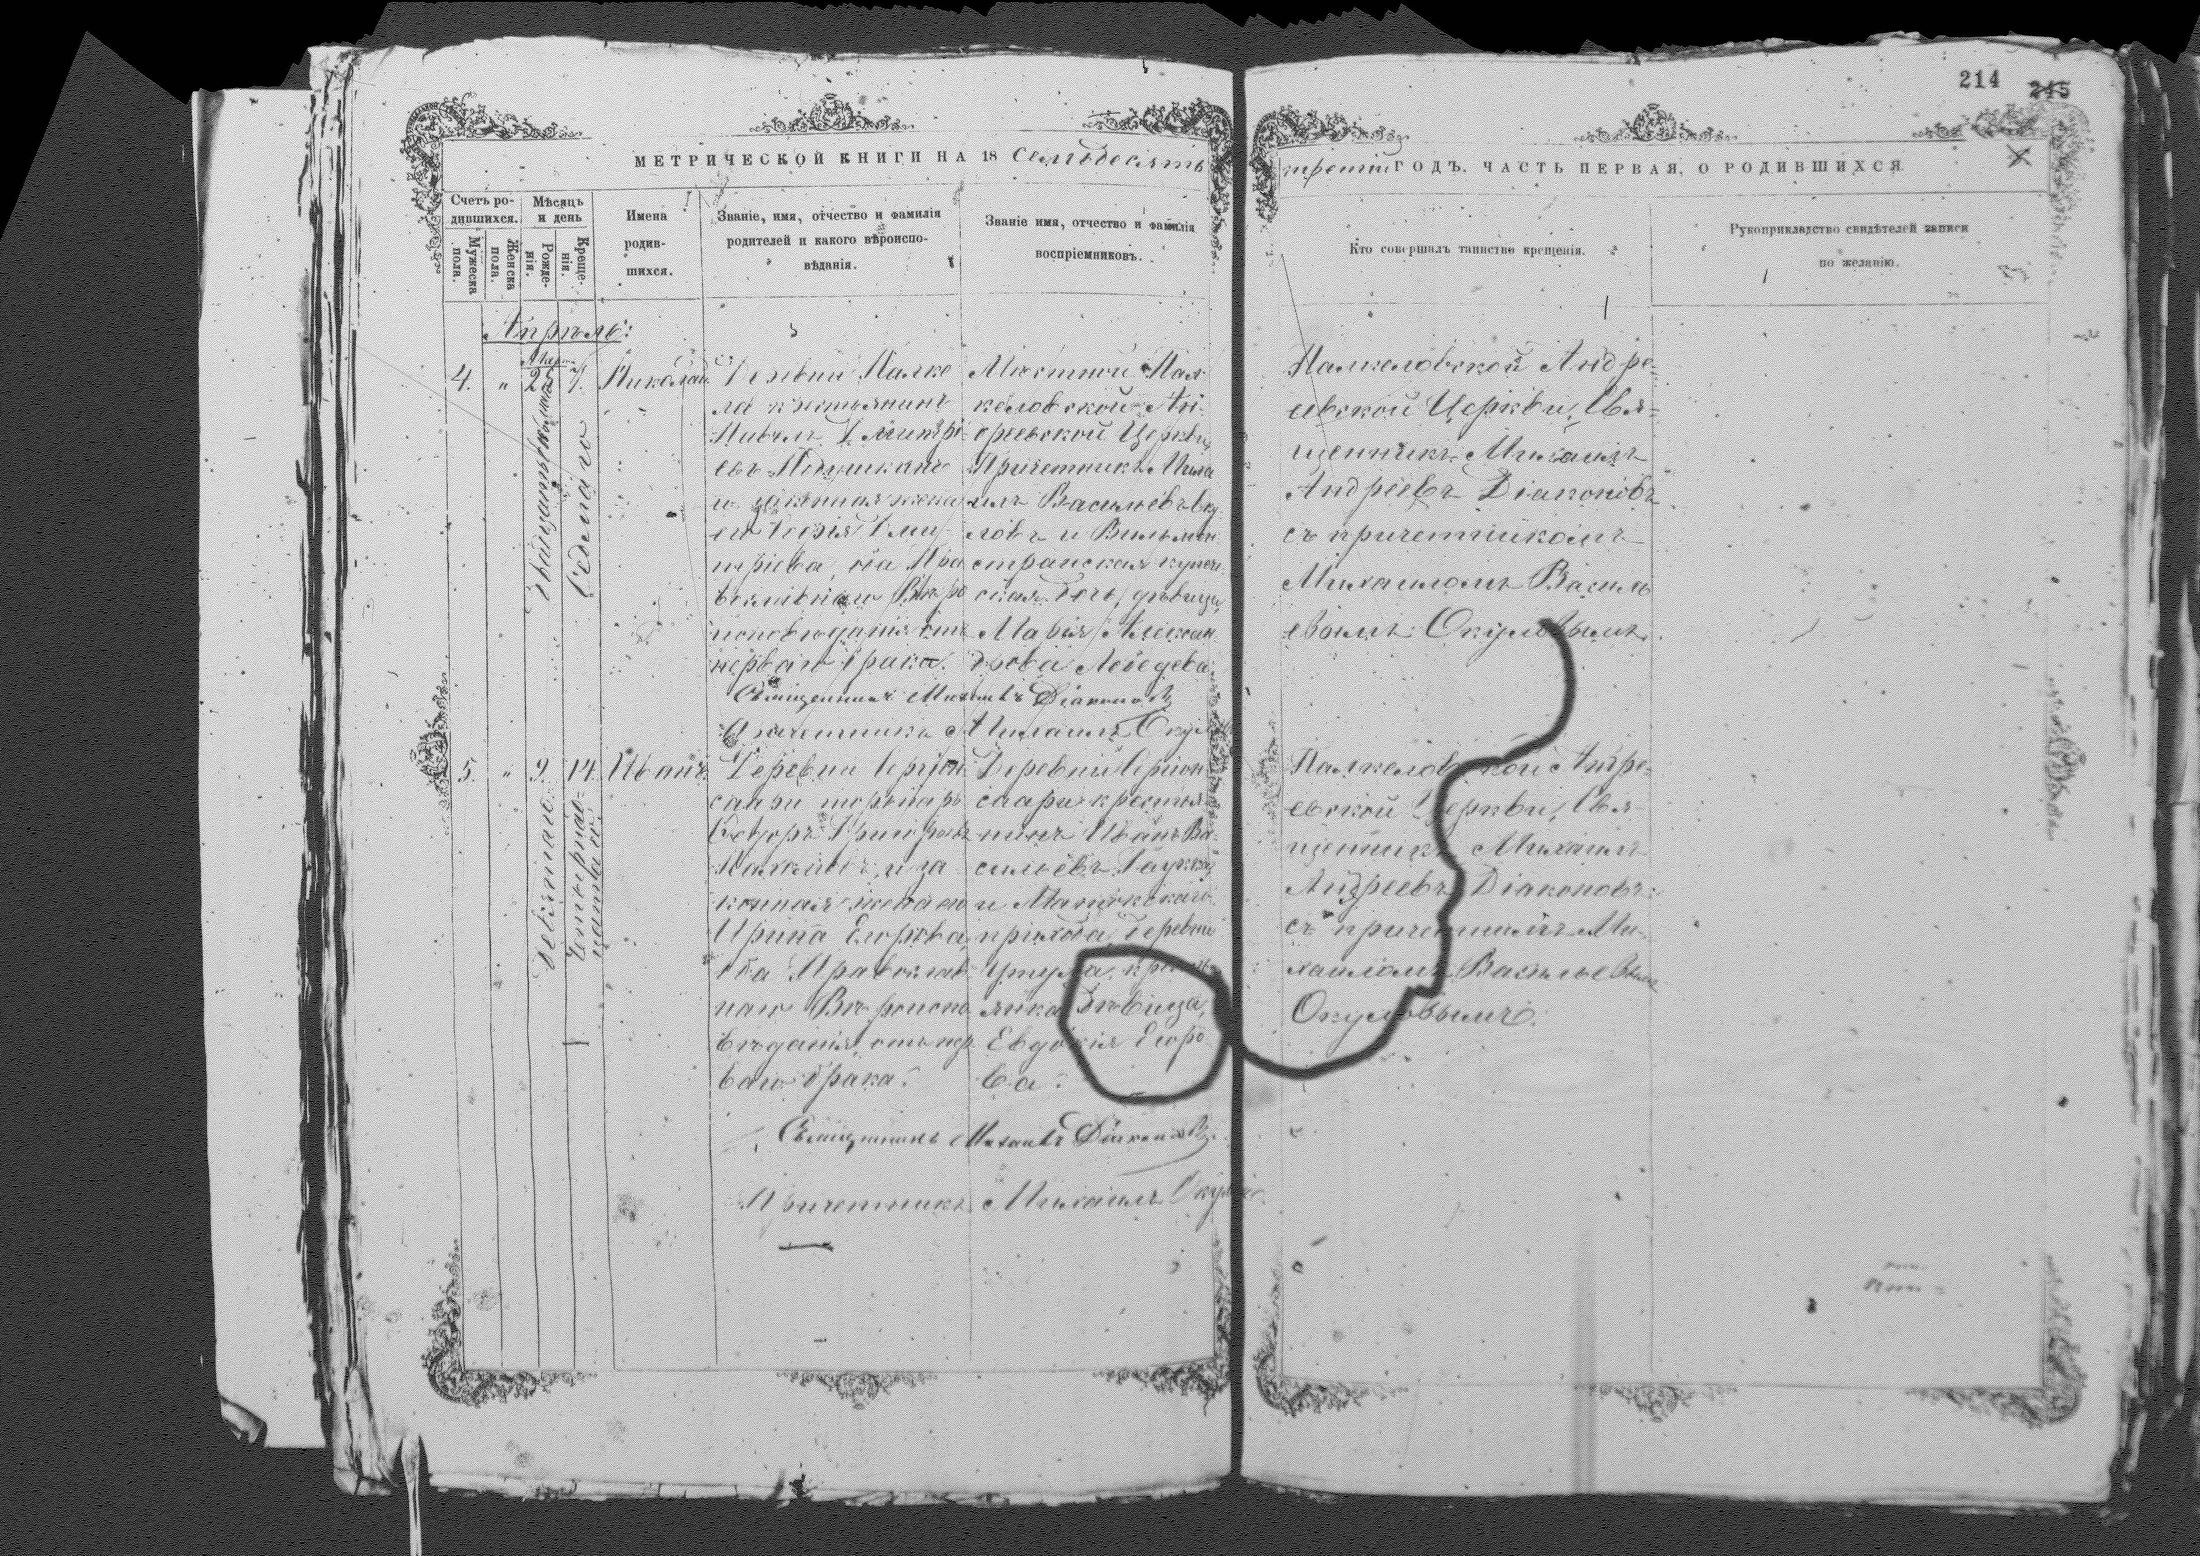 214 245
МЕТРИЧЕСКОЙ КНИГИ НА 18 семьдесятъ
третій ГОДЪ, ЧАСТЬ ПЕРВАЯ, О РОДИВШИХСЯ
Счетъ ро-
дившихся.
Мужеска
пола.
Женска
пола.
Мѣсяцъ
и день
Рожде-
нія.
Креще-
нія.
Имена
родив-
шихся.
Званіе, имя, отчество и фамилія
родителей и какого вѣроиспо-
вѣданія.
Званіе имя, отчество и фамилія
воспріемниковъ.
Кто совершалъ таинство крещенія.
Рукоприкладство свидѣтелей записи
по желанію.
Апрѣль:
4. " 25 7. Николай
седмаго
Деревни Палке
ла крестьянинъ
Дмитрі
евъ
и законная жена
его Дми
тріева, оба Пра
вославнаго Вѣро
исповѣданія отъ
перваго брака.
Мѣстной Пал
келовской Ан
дреевской Церкви,
Причетникъ Миха
илъ Васильевъ Оку
ловъ и Вильман
страиская купече
ская дочь, дѣвица,
Марія Алексан
дрова Лебедева.
Палкеловской Андре-
евской Церкви, Свя-
щенникъ Михаилъ
Андреевъ Діаконовъ
съ причетникомъ
Михаиломъ Василь
евымъ Окуловымъ.
Священникъ Михаилъ Діаконовъ
Причетникъ Михаилъ Окуловъ
5. " 9. 14. Иванъ.
девятаго
четырнад-
цатаго
Деревни
саари
Ѳедоръ Григорьевъ
и за
конная жена его
Ирина Егорова,
оба Православ
наго Вѣроиспо
вѣданія, отъ пер
ваго брака.
Деревни
саари крестья
нинъ Иванъ Ва
сильевъ
и
прихода, деревни
крестья
янка дѣвица,
Евдокія Егоро
ва.
Палкеловской Андре-
евской Церкви, Свя-
щенникъ Михаилъ
Андреевъ Діаконовъ
съ причетникомъ Ми-
хаиломъ Васильевымъ
Окуловымъ.
Священникъ Михаилъ Діаконовъ
Причетникъ Михаилъ Окуловъ